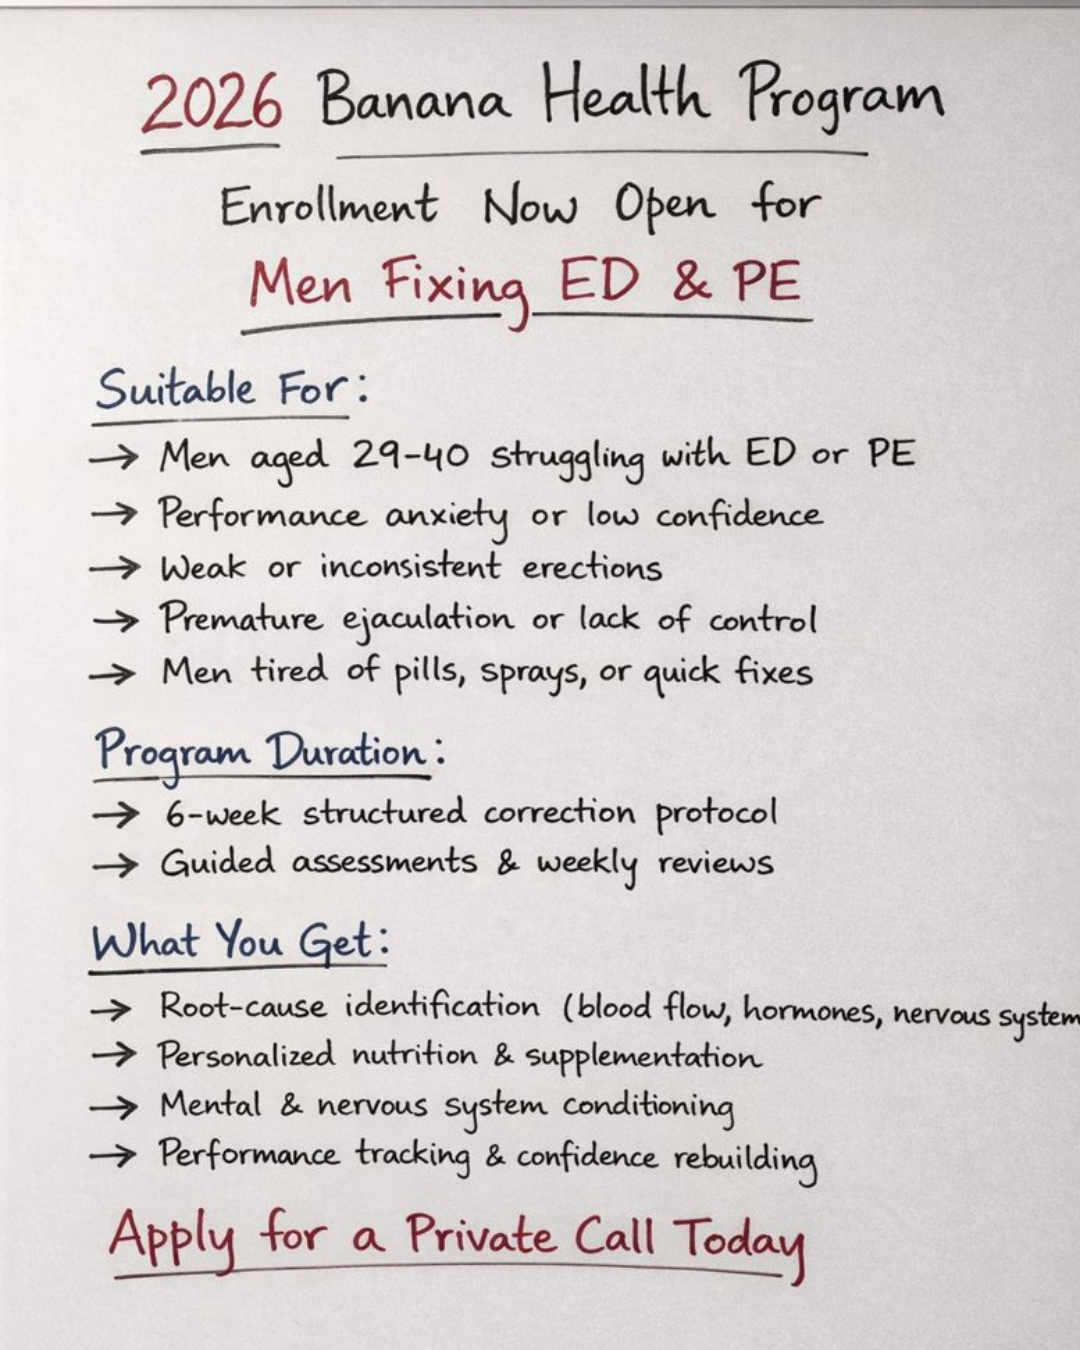 2026 Banana Health Program
Enrollment Now Open for
Men Fixing ED & PE
Suitable For:
→ Men aged 29-40 struggling with ED or PE
→ Performance anxiety or low confidence
→ Weak or inconsistent erections
→ Premature ejaculation or lack of control
→ Men tired of pills, sprays, or quick fixes
Program Duration:
→ 6-week structured correction protocol
→ Guided assessments & weekly reviews
What You Get:
→ Root-cause identification (blood flow, hormones, nervous system
→ Personalized nutrition & supplementation
→ Mental & nervous system conditioning
→ Performance tracking & confidence rebuilding
Apply for a Private Call Today